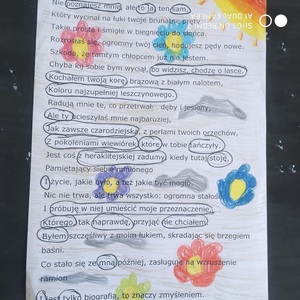 Nie poznajesz mnie, ale to ja ten sam,
Który wycinał na łuki twoje brunatne
Takie proste i śmigłe w biegnięciu do słońca.
Rozrosłaś się, ogromny twój hodujesz pędy nowe.
Szkoda, że tamtym chłopcem już nie jestem.
Chyba kij sobie bym wyciął, bo widzisz, chodzę o lasce.
Kochałem twoją korę brązową z białym nalotem,
Koloru najzupełniej leszczynowego.
Radują mnie te, co przetrwały dęby i jesiony,
Ale ty ucieszyłaś mnie najbardziej,
Jak zawsze czarodziejska, z perłami twoich orzechów,
Z pokoleniami wiewiórek, które w tobie tańczyły.
Jest coś z heraklitejskiej zadumy, kiedy tutaj stoję,
Pamiętający siebie minionego
I życie, jakie było, a też jakie być mogło.
Nic nie trwa, ale trwa wszystko: ogromna stałość.
I próbuję w niej umieścić moje przeznaczenie,
Którego, tak naprawdę, przyjąć nie chciałem.
Byłem szczęśliwy z moim łukiem, skradając się brzegiem
baśni.
Co stało się ze mną później, zasługuje na wzruszenie
ramion
I jest tylko biografią, to znaczy zmyśleniem.
SHOT ON REDMI
AI DUAL CAMERA